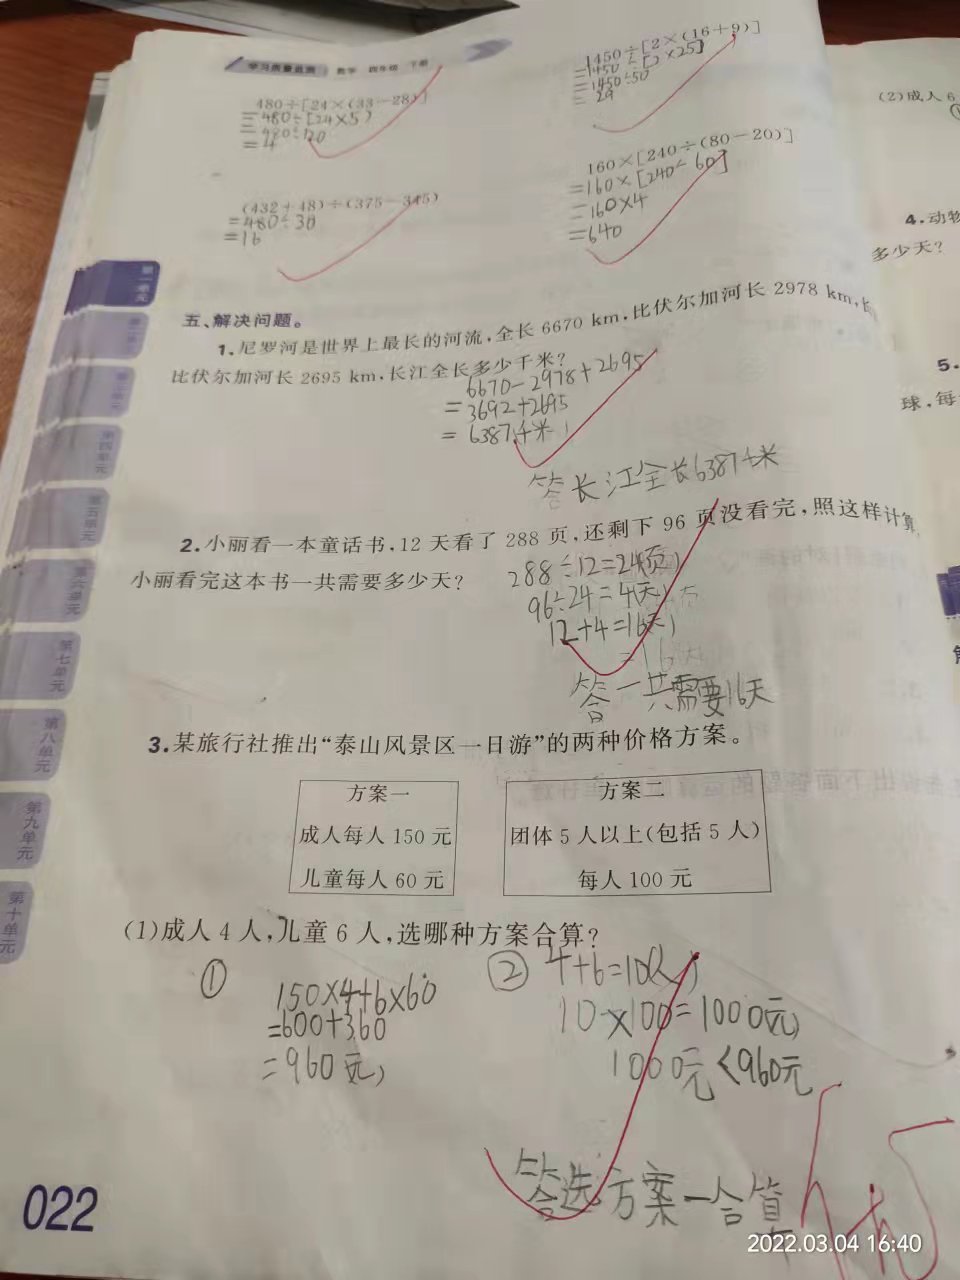 学习质量监测 数学 四年级 下册
480÷[24×(33-28)]
=480÷[24×5]
=480÷120
=4
1450÷[2×(16+9)]
=1450÷[2×25]
=1450÷50
=29
(432+48)÷(375-345)
=480÷30
=16
160×[240÷(80-20)]
=160×[240÷60]
=160×4
=640
五、解决问题。
1.尼罗河是世界上最长的河流,全长 6670 km,比伏尔加河长 2978 km,长
比伏尔加河长 2695 km,长江全长多少千米?
6670-2978+2695
=3692+2695
=6387(千米)
答长江全长6387千米
2.小丽看一本童话书,12 天看了 288 页,还剩下 96 页没看完,照这样计算,
小丽看完这本书一共需要多少天?
288÷12=24(页)
96÷24=4(天)
12+4=16(天)
答一共需要16天
3.某旅行社推出“泰山风景区一日游”的两种价格方案。
方案一
成人每人 150 元
儿童每人 60 元
方案二
团体 5 人以上(包括 5 人)
每人 100 元
(1)成人 4 人,儿童 6 人,选哪种方案合算?
①
150×4+6×60
=600+360
=960(元)
② 4+6=10(人)
10×100=1000(元)
1000元<960元
答选方案一合算
022
第一单元
第四单元
第五单元
第六单元
第七单元
第八单元
第九单元
第十单元
(2)成人 6
4.动物
多少天?
5.
球,每
2022.03.04 16:40